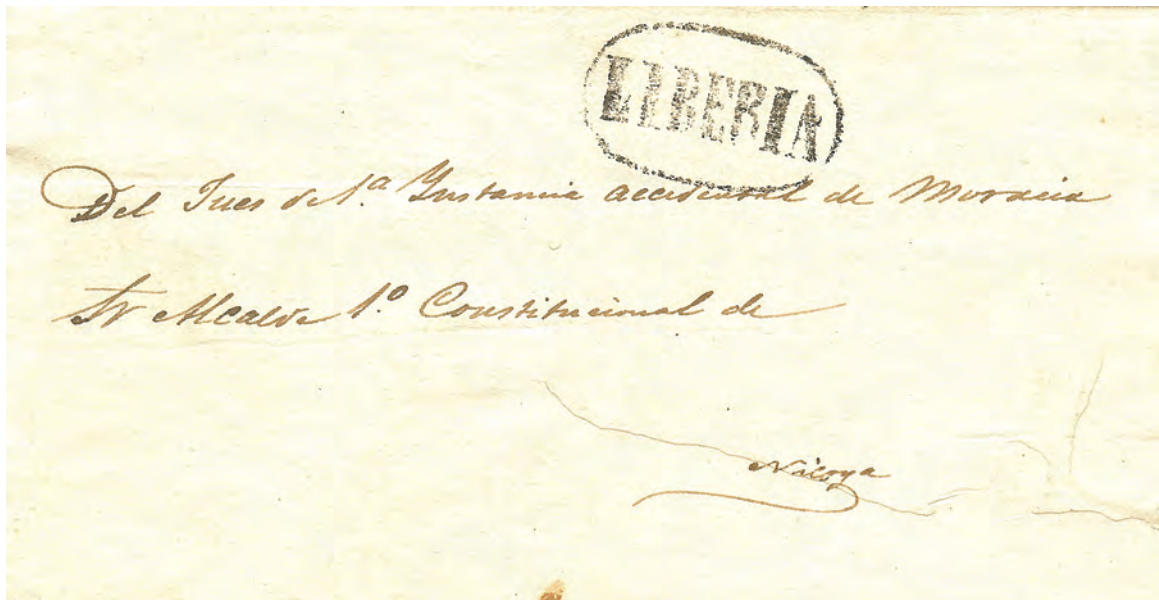 LIBERIA
Del Jues de 1.ª Ynstancia accidental de Moracia
Sr Alcalde 1.º Constitucional de
Nicoya